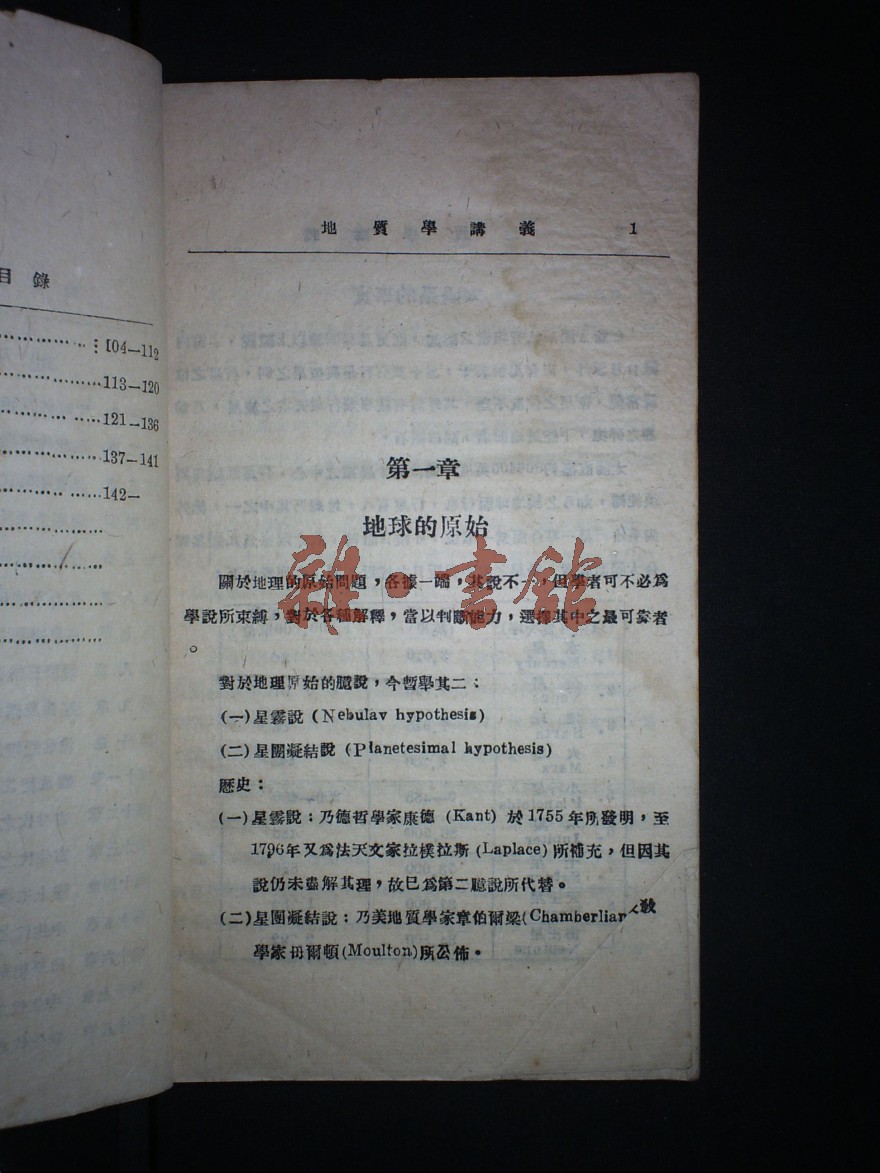 目錄
104—112
113—120
121—136
137—141
142—
地質學講義 1
第一章
地球的原始
關於地理的原始問題，各據一端，其說不一，但學者可不必爲
學說所束縛，對於各種解釋，當以判斷能力，選擇其中之最可靠者
。
對於地理原始的臆說，今暫舉其二：
(一)星雲說 (Nebulav hypothesis)
(二)星團凝結說 (Planetesimal hypothesis)
歷史：
(一)星雲說：乃德哲學家康德 (Kant) 於 1755 年所發明，至
1796年又爲法天文家拉樸拉斯 (Laplace) 所補充，但因其
說仍未盡解其理，故已爲第二臆說所代替。
(二)星團凝結說：乃美地質學家章伯爾梁(Chamberliar
學家毋爾頓(Moulton)所公佈。
雜·書館